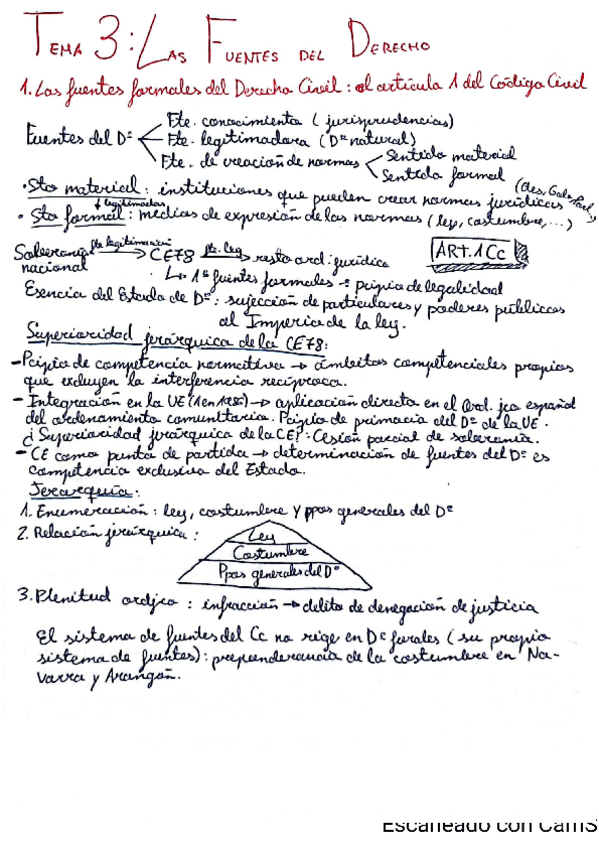 TEMA 3: LAS FUENTES DEL DERECHO
1. Las fuentes formales del Derecho Civil: el artículo 1 del Código Civil
Fuentes del Dº
Fte. conocimiento (jurisprudencias)
Fte. legitimadora (Dº natural)
Fte. de creación de normas
Sentido material
Sentido formal
• Sto material: instituciones que pueden crear normas jurídicas
↓ legitimadas
• Sto formal: medios de expresión de las normas (ley, costumbre,...)
Soberanía nacional fte legitimación → CE78 fte. ley → resto ord. jurídico
ART. 1 Cc
↳ 1ª fuentes formales → ppio de legalidad
Esencia del Estado de Dº: sujección de particulares y poderes públicos
al Imperio de la ley.
Superioridad jerárquica de la CE78:
- Pcipio de competencia normativa → ámbitos competenciales propios
que excluyen la interferencia recíproca.
- Integración en la UE (1 en 1986) → aplicación directa en el Ord. jco español
del ordenamiento comunitario. Pcipio de primacía del Dº de la UE.
¿Superioridad jerárquica de la CE?: Cesión parcial de soberanía.
- CE como punto de partida → determinación de fuentes del Dº es
competencia exclusiva del Estado.
Jerarquía:
1. Enumeración: ley, costumbre y ppos generales del Dº
2. Relación jerárquica:
Ley
Costumbre
Ppos generales del Dº
3. Plenitud ordjco: infracción → delito de denegación de justicia
El sistema de fuentes del Cc no rige en Dº forales (su propio
sistema de fuentes): preponderancia de la costumbre en Na-
varra y Aragón.
Escaneado con CamS